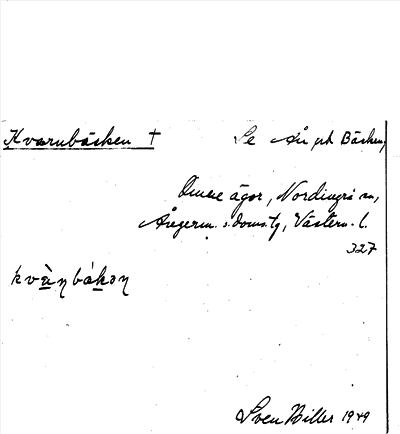 Kvarnbäcken †
Se Ån och Bäcken,
Omne ägor, Nordingrå sn,
Ångerm. s. doms.tg, Västern. l.
327
kvὰ̲ηbák̲əη
Sven Biller 1949